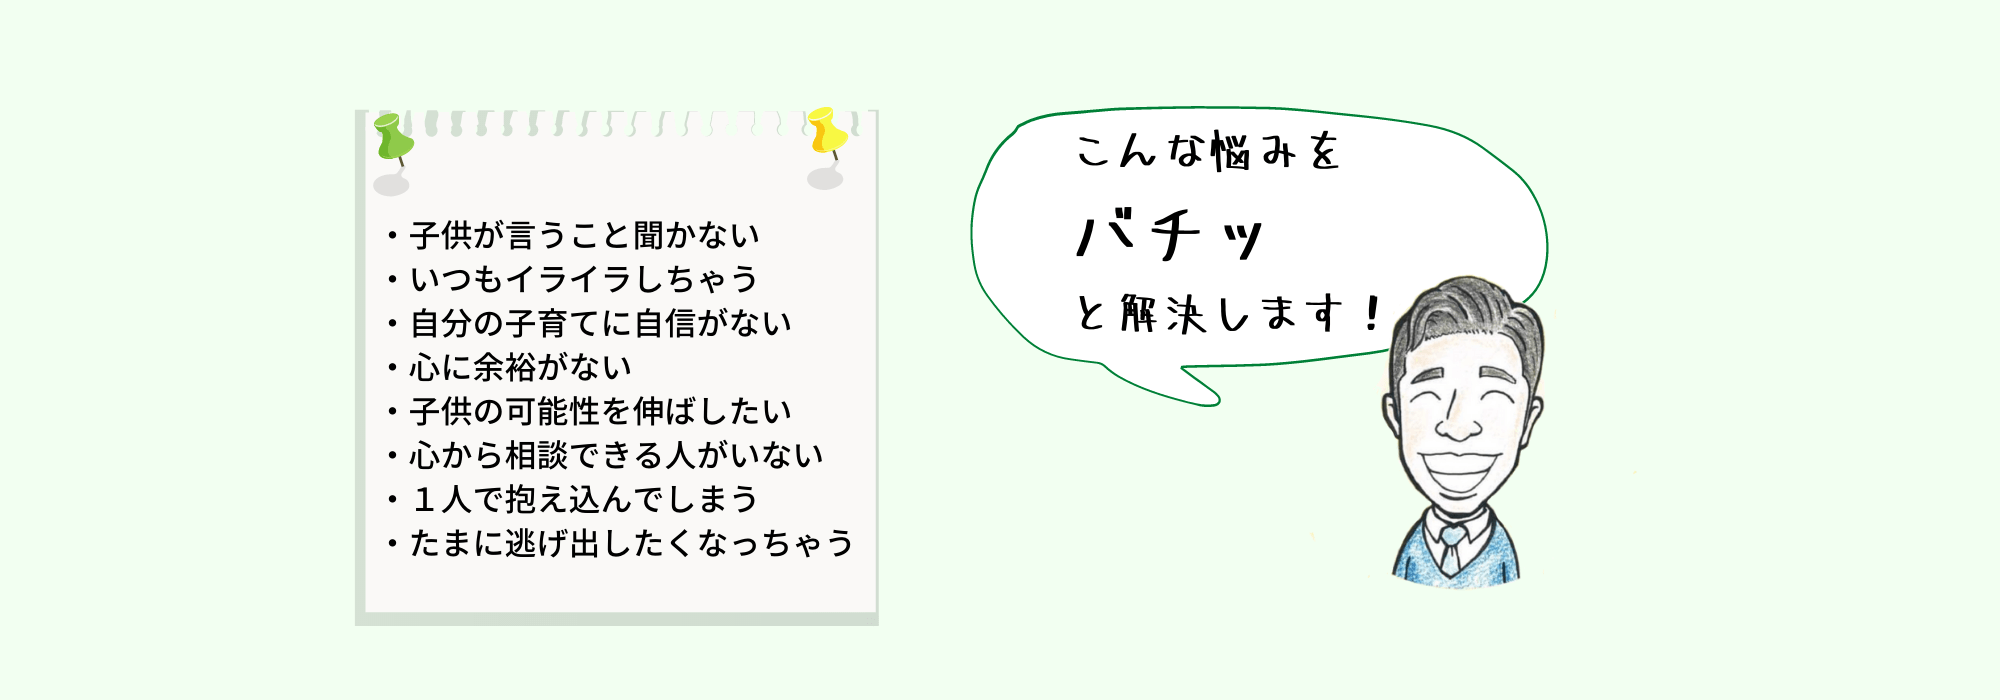 ・子供が言うこと聞かない
・いつもイライラしちゃう
・自分の子育てに自信がない
・心に余裕がない
・子供の可能性を伸ばしたい
・心から相談できる人がいない
・１人で抱え込んでしまう
・たまに逃げ出したくなっちゃう
こんな悩みを
バチッ
と解決します！